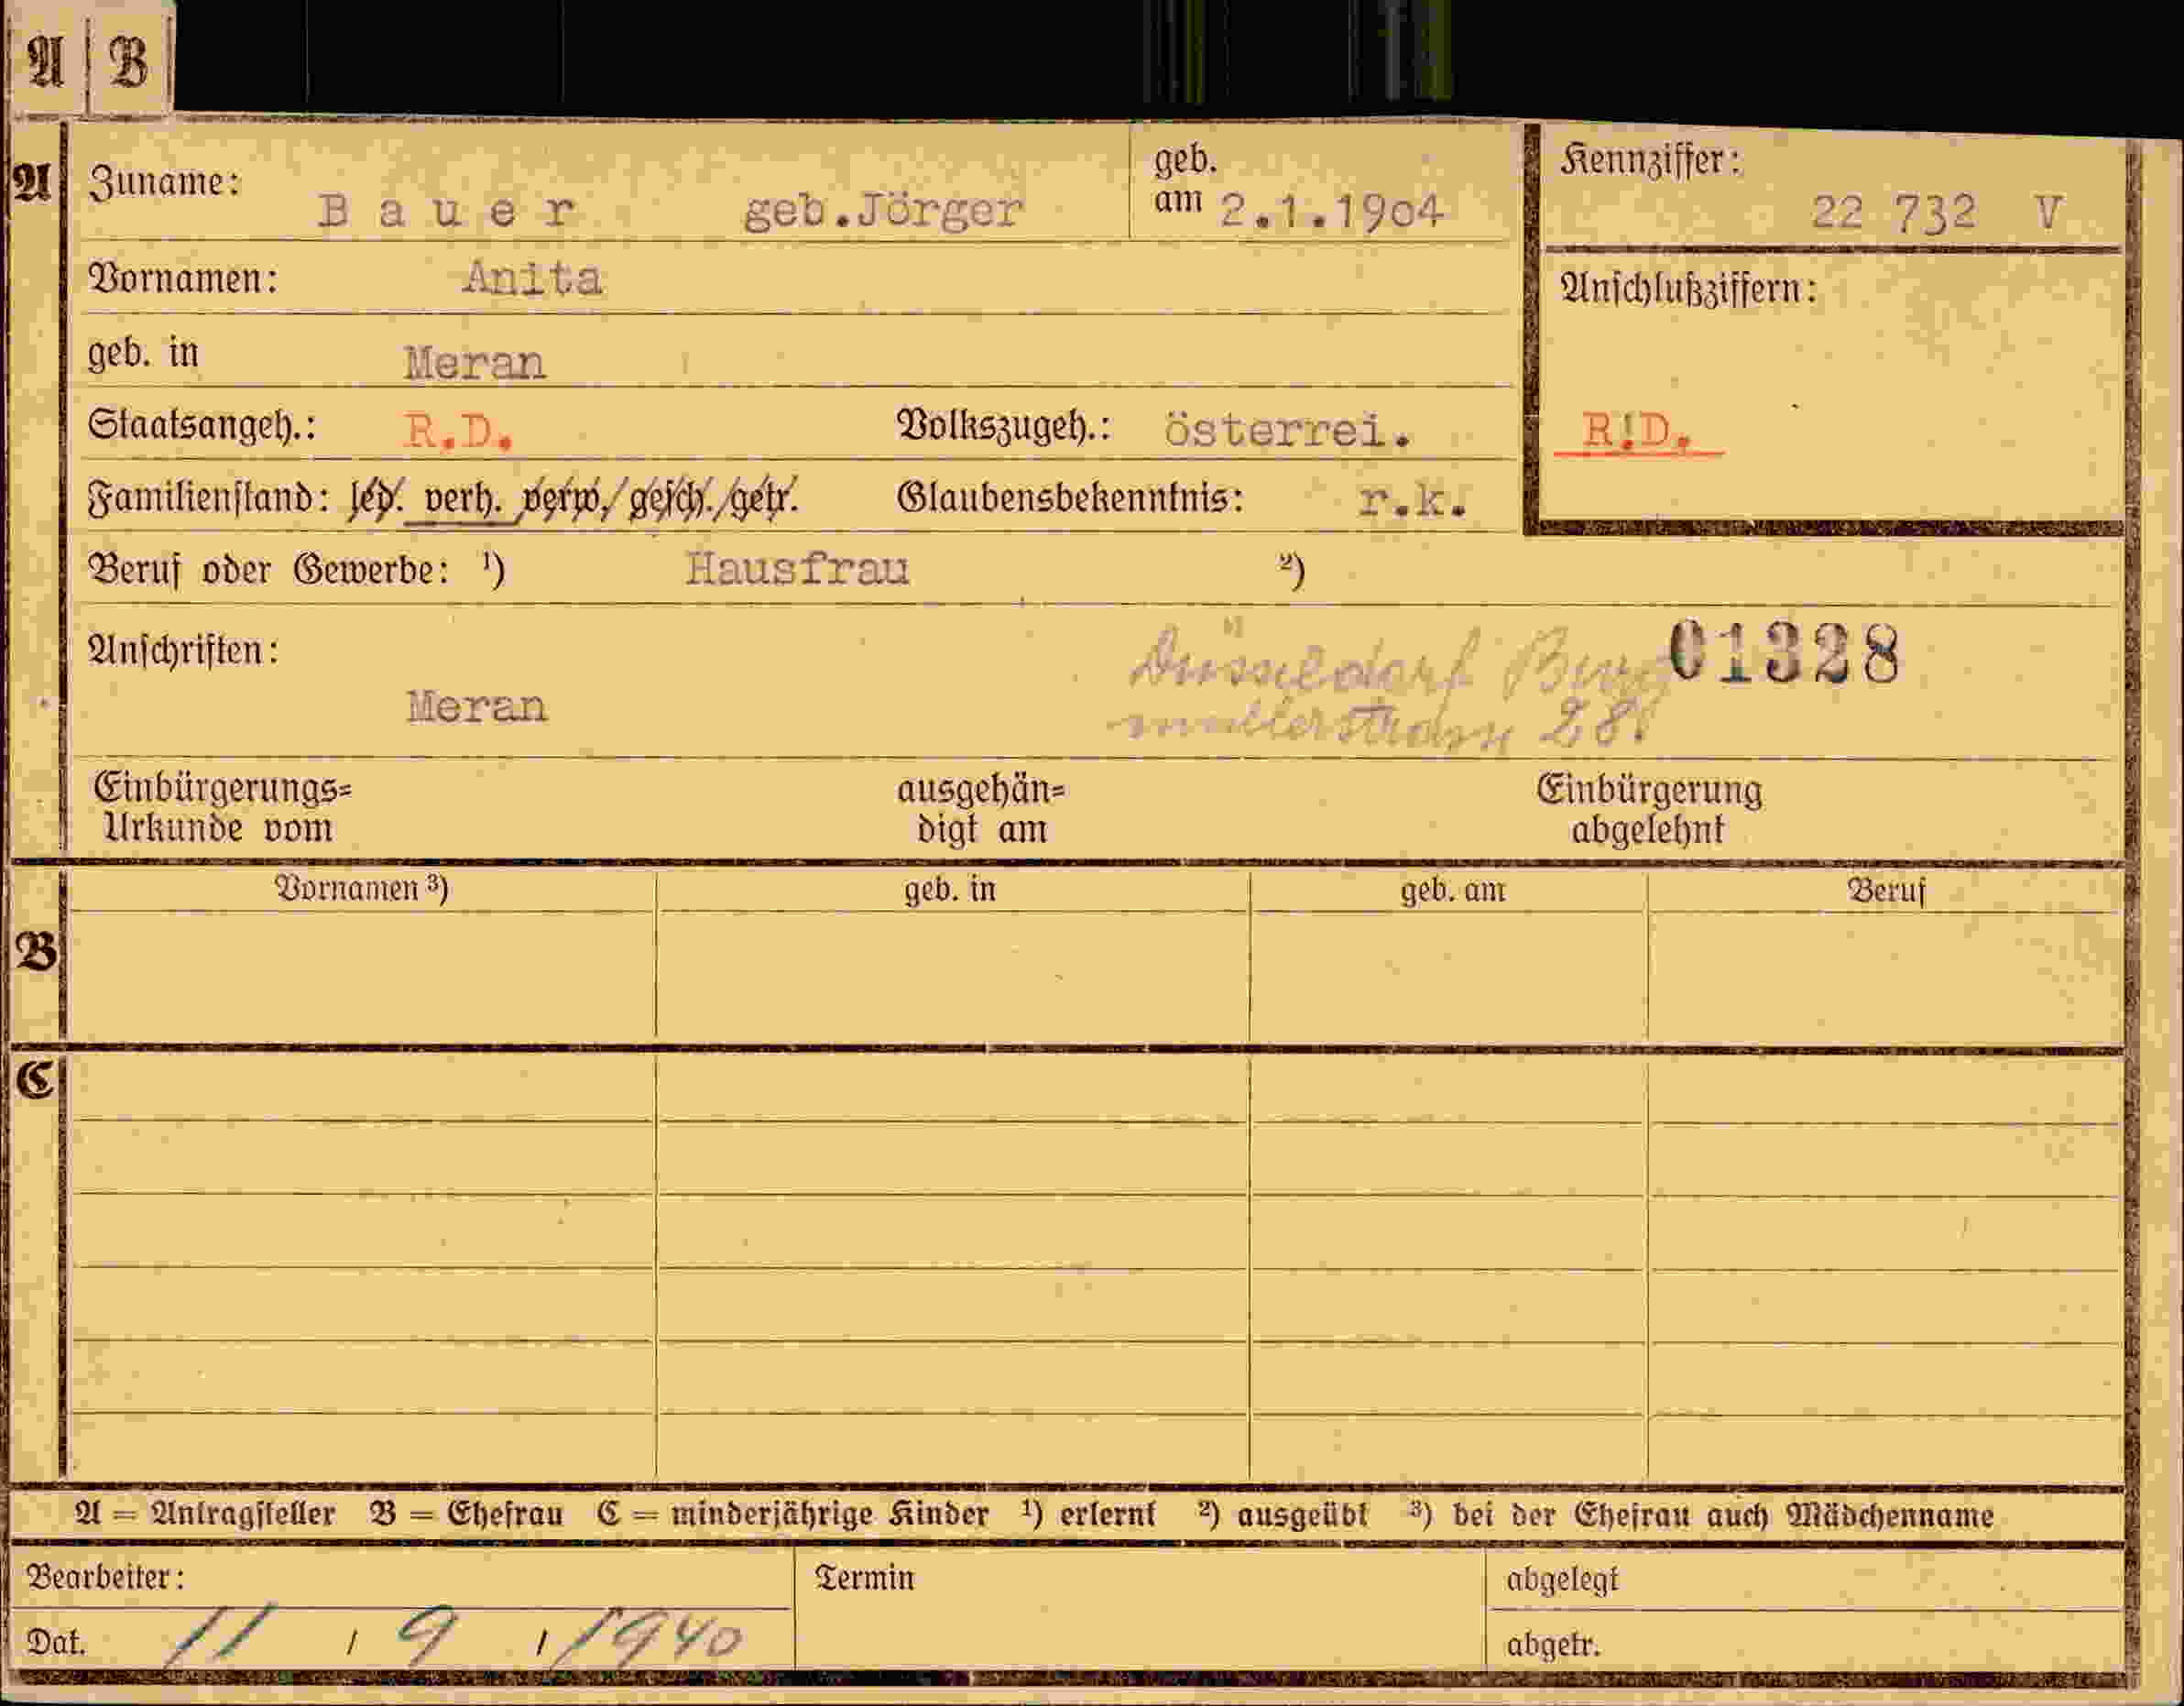 A B
A
Zuname: Bauer geb.Jörger geb. am 2.1.1904
Kennziffer: 22 732 V
Vornamen: Anita
Anschlußziffern:
geb. in Meran
Staatsangeh.: R.D. Volkszugeh.: österrei.
R!D.
Familienstand: led. verh. verw./gesch./getr. Glaubensbekenntnis: r.k.
Beruf oder Gewerbe: ¹) Hausfrau ²)
Anschriften: Düsseldorf 01328
Meran 28
Einbürgerungs= ausgehän= Einbürgerung
Urkunde vom digt am abgelehnt
Vornamen ³) geb. in geb. am Beruf
B
C
A = Antragsteller B = Ehefrau C = minderjährige Kinder ¹) erlernt ²) ausgeübt ³) bei der Ehefrau auch Mädchenname
Bearbeiter: Termin abgelegt
Dat. 11 / 9 / 1940 abgetr.